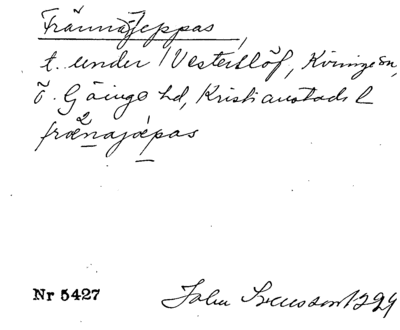 Frännajeppas,
t. under Vesterslöf, Kviinge sn,
ö. Göinge hd, Kristianstads l
frænajæpas
Nr 5427
John Svensson 1929